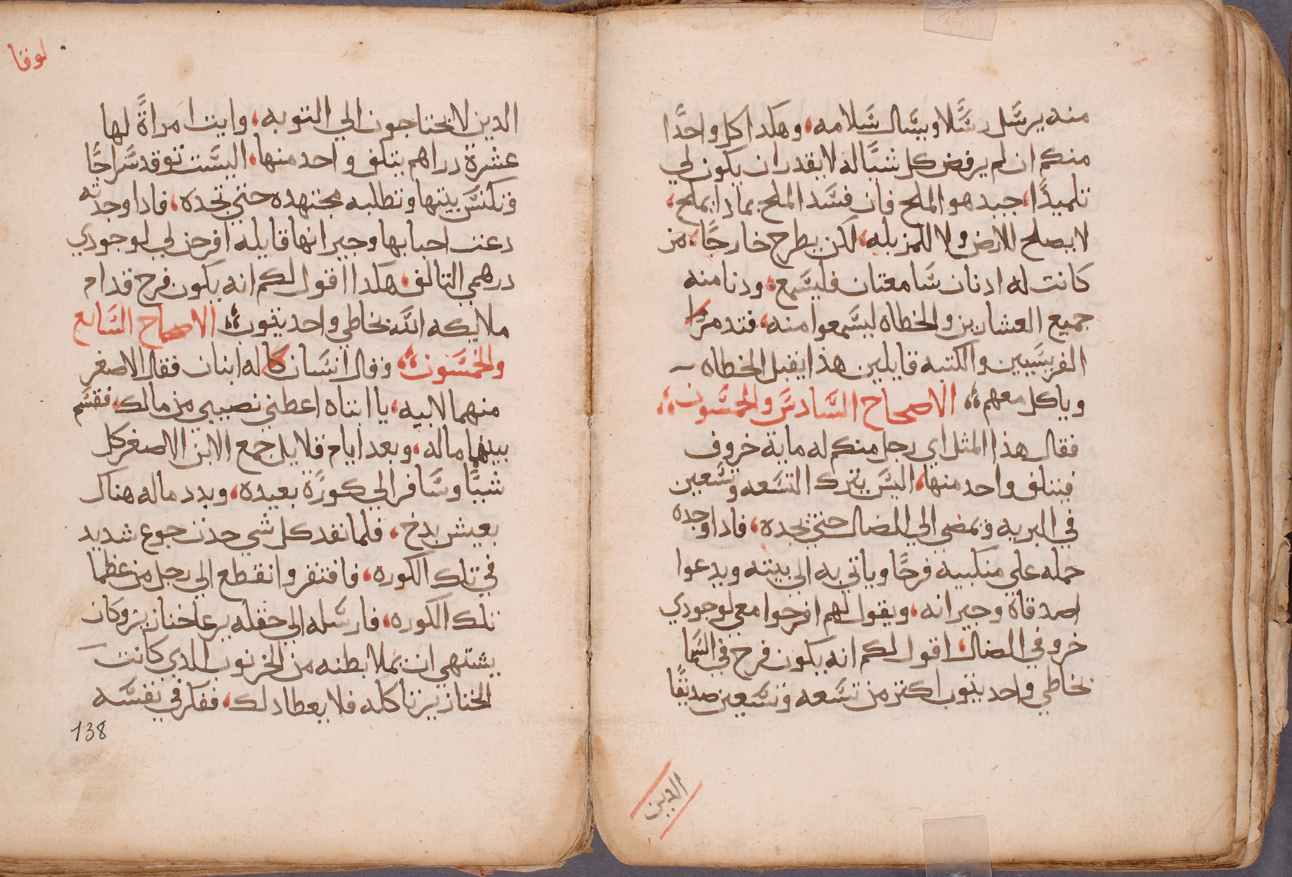 منه يرسَّل رسَّلا ويسَّال سَّلامه، وهكدا كل واحدًا
منكم ان لم يرفض كل شيَّاله لا يقدر ان يكون لي
تلميدًا، جيد هو الملح فان فسَّد الملح بمادا يملح،
لا يصلح للارض ولا للمزبله، لكن يطرح خارجًا، من
كانت له ادنان سَّامعتان فليسَّمع، ودنا منه
جميع العشارين والخطاه ليسَّمعوا منه، فتدمرَّ
الفريسَّيين والكتبه قايلين هذا يقبل الخطاه
وياكل معهم، الاصحاح السَّادسَّ والخمسَّون،
فقال هذا المثل اي رجل منكم له ماية خروف
فيتلف واحد منها، اليسَّ يترك التسَّعه وتسَّعين
في البريه ويمضي الي الضال حتي يجده، فادا وجده
حمله علي منكبيه فرحًا وياتي به الي بيته ويدعوا
اصدقاه وجيرانه، ويقول لهم افرحوا معي لوجودي
خروفي الضال، اقول لكم انه يكون فرح في السَّما
بخاطي واحد يتوب اكتر من تسَّعه وتسَّعين صديقًا
الدين
لوقا
الدين لا يحتاجون الي التوبه، وايت امراةً لها
عشرة دراهم يتلف واحد منها، اليسَّت توقد سَّراجًا
وتكنسَّ بيتها وتطلبه مجتهده حتي تجده، فادا وجدته
دعت احبابها وجيرانها قايله افرحن لي لوجودي
درهمي التالف، هكدا اقول لكم انه يكون فرح قدام
ملايكه الله بخاطي واحد يتوب، الاصحاح السَّابع
والخمسَّون، وقال انسَّان كاله ابنان فقال الاصغر
منهما لابيه، يا ابتاه اعطني نصيبي من مالك، فقسَّم
بينهما ماله، وبعد ايام قلايل جمع الابن الاصغر كل
شيًّا وسَّافر الي كورةً بعيده، وبدد ماله هناك
بعيش بدخ، فلما نفد كل شي حدت جوع شديد
في تلك الكوره، فافتقر وانقطع الي رجل من عظما
تلك الكوره، فارسَّله الي حقله يرعا خنازير وكان
يشتهي ان يملا بطنه من الخرنوب الدي كانت
الخنازير تاكله فلا يعطا دلك، ففكر في نفسَّه
138